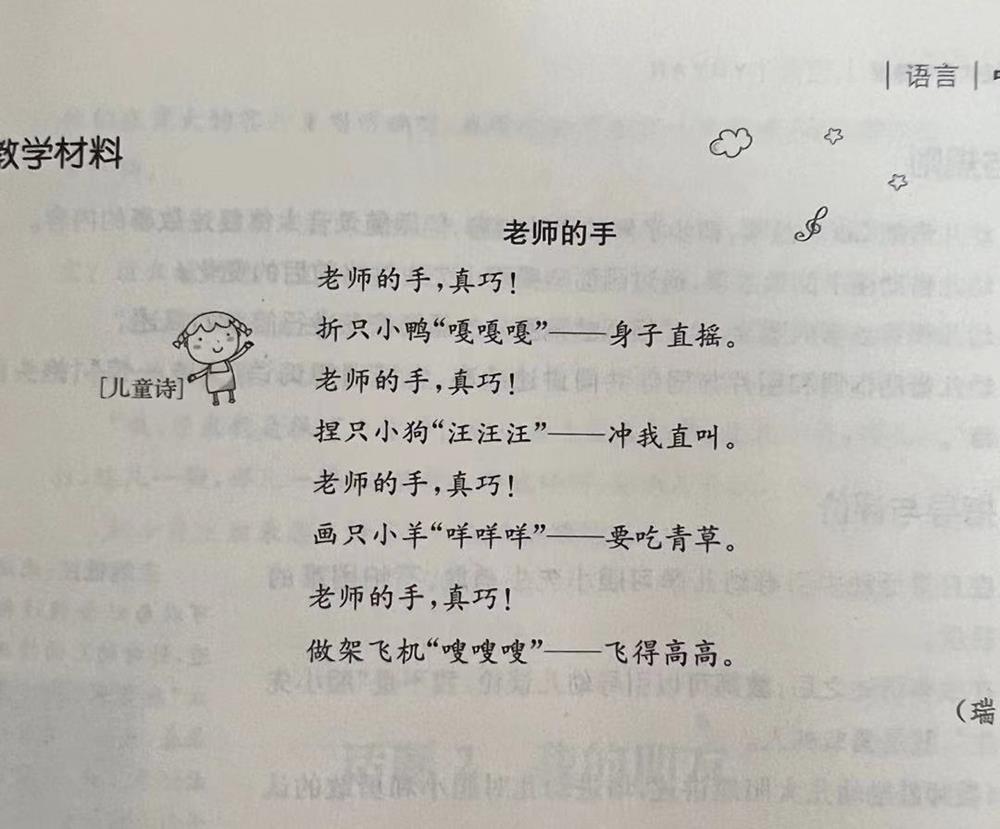 |语言|
教学材料
老师的手
老师的手，真巧！
折只小鸭“嘎嘎嘎”——身子直摇。
[儿童诗]
老师的手，真巧！
捏只小狗“汪汪汪”——冲我直叫。
老师的手，真巧！
画只小羊“咩咩咩”——要吃青草。
老师的手，真巧！
做架飞机“嗖嗖嗖”——飞得高高。
（瑞